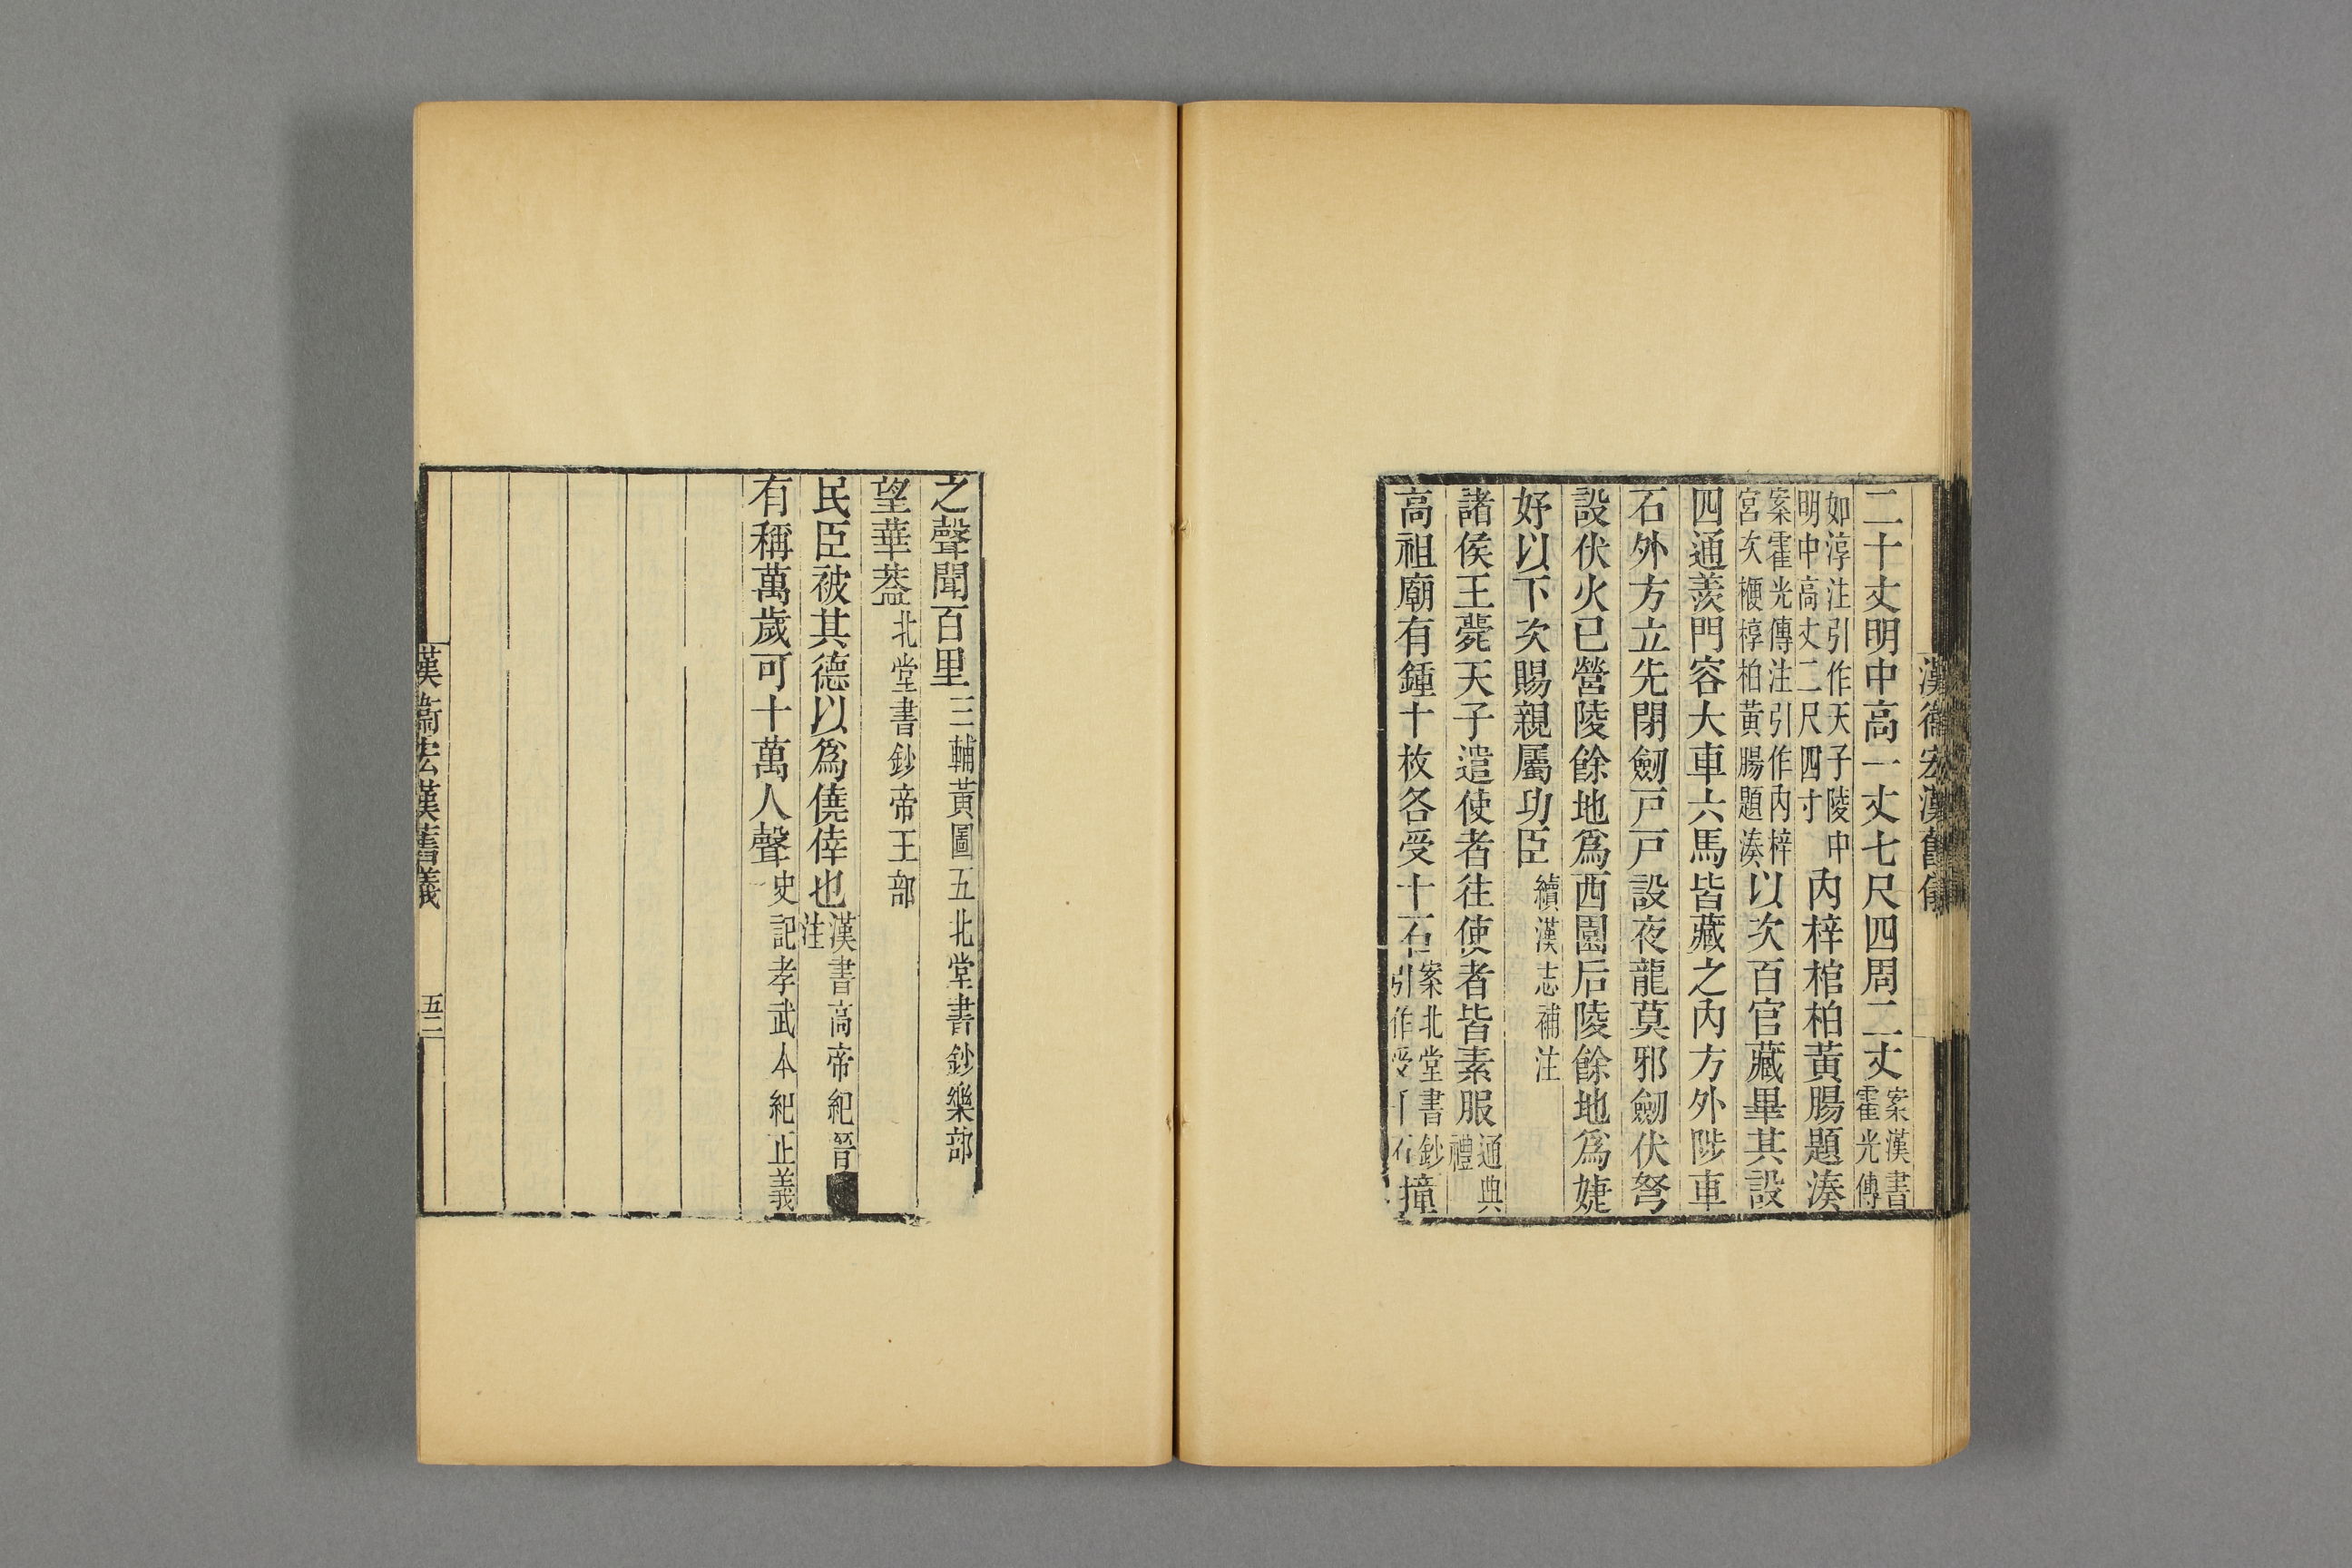 漢衛宏漢舊儀
二十丈明中高一丈七尺四周二丈案漢書霍光傳
如淳注引作天子陵中明中高丈二尺四寸內梓棺柏黃腸題湊
案霍光傳注引作內梓宮次楩椁柏黃腸題湊以次百官藏畢其設
四通羨門容大車六馬皆藏之內方外陟車
石外方立先閉劒戸戸設夜龍莫邪劒伏弩
設伏火已營陵餘地爲西園后陵餘地爲婕
妤以下次賜親屬功臣續漢志補注
諸侯王薨天子遣使者往使者皆素服通典禮
高祖廟有鍾十枚各受十石案北堂書鈔引作受千石撞
之聲聞百里三輔黃圖五北堂書鈔樂部
望華葢北堂書鈔帝王部
民臣被其德以爲僥倖也漢書高帝紀晉注
有稱萬歲可十萬人聲史記孝武本紀正義
漢衞宏漢舊義
五二